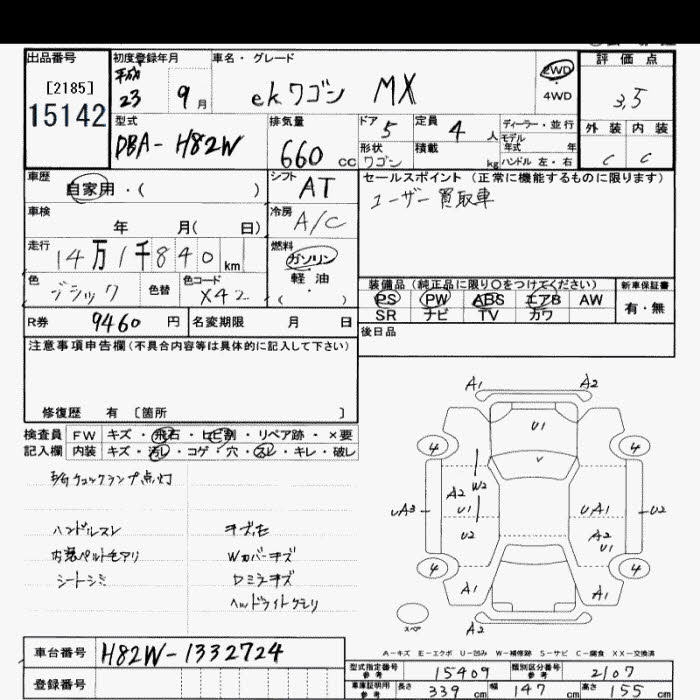 出品番号 [2185] 15142
初度登録年月 平成 23 9月
車名・グレード ekワゴン MX
2WD
4WD
評価点 3.5
外装 内装
C C
型式 DBA-H82W
排気量 660cc
ドア 5
形状 ワゴン
定員 4人
積載 kg
ディーラー・並行
モデル年式 年
ハンドル 左・右
車歴 自家用・( )
シフト AT
車検 年 月( 日)
冷房 A/C
走行 14万1千840km
燃料 ガソリン
軽油
( )
色 色替 色コード X42
セールスポイント(正常に機能するものに限ります)
ユーザー買取車
装備品(純正品に限り○をつけてください)
PS PW ABS エアB AW
SR ナビ TV カワ
新車保証書
有・無
R券 9460円 名変期限 月 日
後日品
注意事項申告欄(不具合内容等は具体的に記入して下さい)
修復歴 有 [箇所 ]
検査員記入欄
FW キズ・飛石・ヒビ割・リペア跡・×要
内装 キズ・汚レ・コゲ・穴・スレ・キレ・破レ
チェックランプ点灯
ハンドルスレ
シートシミ
Wカバーキズ
ロミラキズ
ヘッドライトクモリ
A1 A2
U1
4 4
W2
A2
uA3 U1 UA1 U2
U2 A2
U1
4 4
A1 A1
スペア
A2
A-キズ E-エクボ U-凹み W-補修跡 S-サビ C-腐食 XX-交換済
車台番号 H82W-1332724
登録番号
型式指定番号 参考 15409 類別区分番号 参考 2107
車庫証明用 参考 長さ 339cm 幅 147cm 高さ 155cm